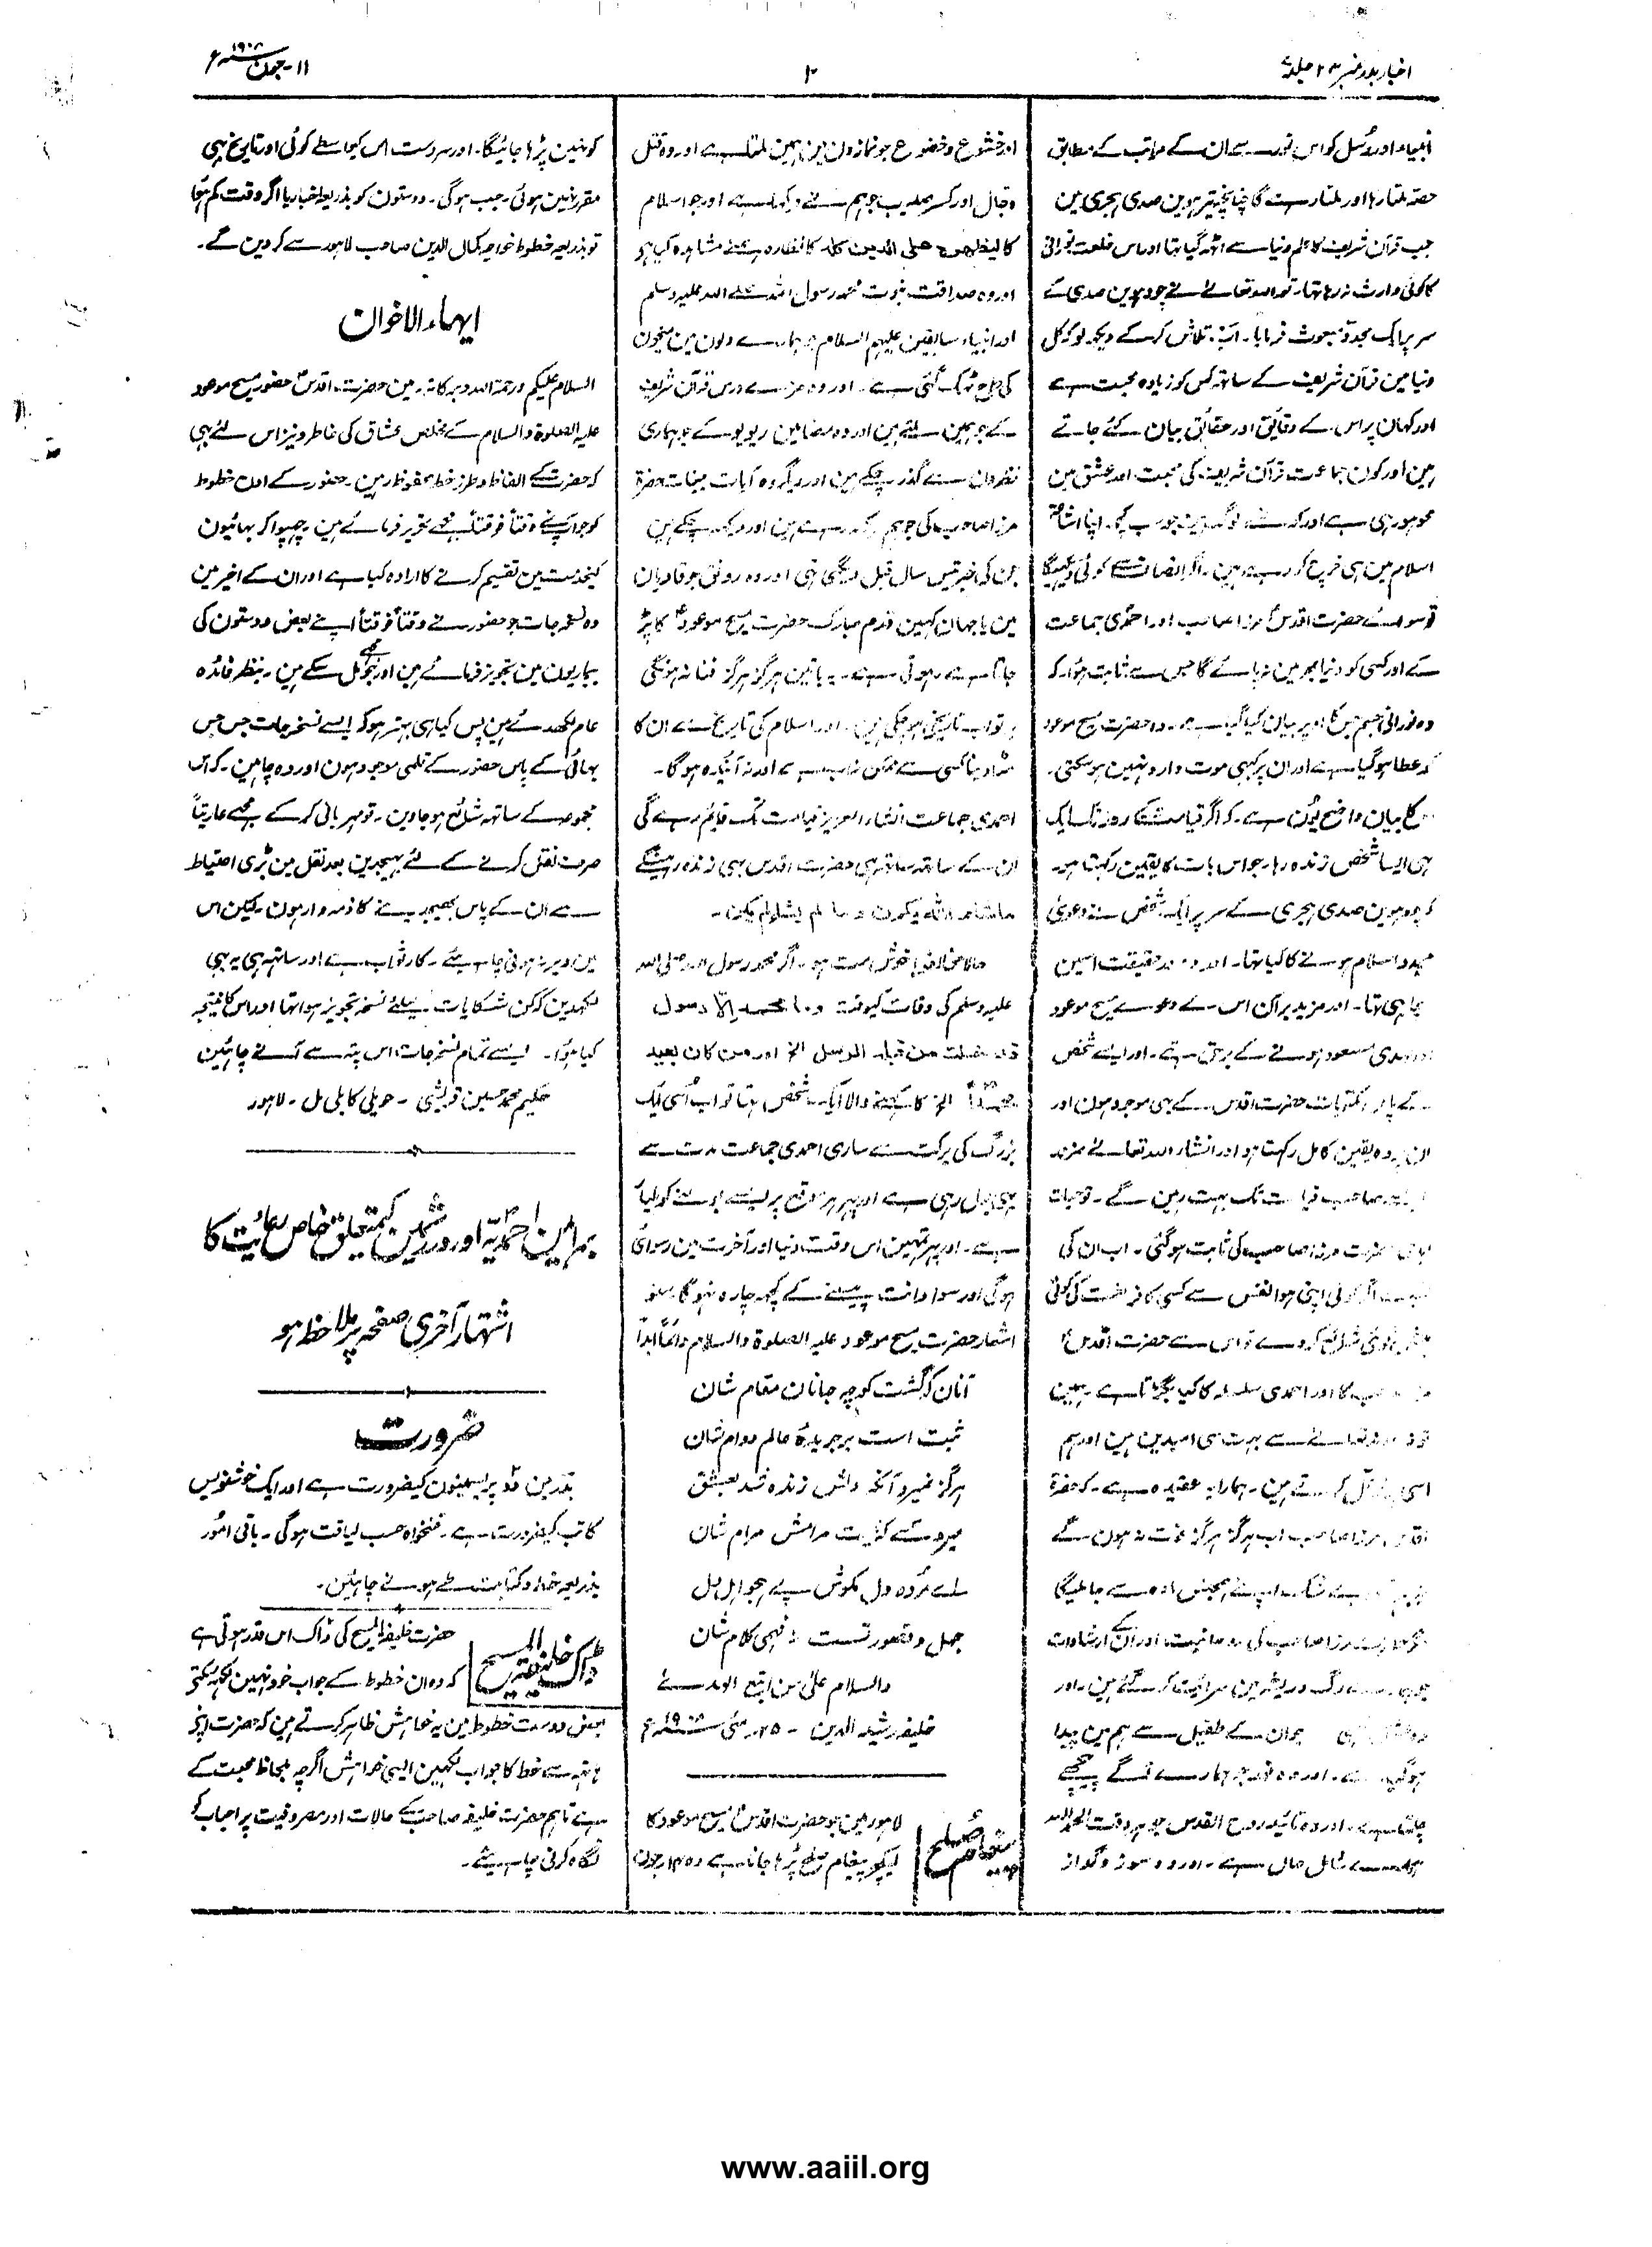 اخبار بدر نمبر ۲۳ جلد ۷
۲
۱۱ - جون ۱۹۰۸ء
انبیاء اور رسل کو اس نور سے ان کے مراتب کے مطابق
حصہ ملتا رہا اور ملتا رہے گا چنانچہ تیرہوین صدی ہجری مین
جب قرآن شریف کا علم دنیا سے اٹھ گیا تہا اور اس خلعت نورانی
کا کوئی وارث نہ رہا تہا۔ تو اللہ تعالےٰ نے چودہوین صدی کے
سر پر ایک مجدد مبعوث فرمایا۔ اب تلاش کر کے دیکھ لو کہ کل
دنیا مین قرآن شریف کے ساتھ کس کو زیادہ محبت ہے
اور کہان پر اس کے دقایق اور حقایق بیان کئے جاتے
ہین اور کون جماعت قرآن شریف کی محبت اور عشق مین
محو ہو رہی ہے اور کون لوگ ہین جو سب کچھ اپنا اشاعت
اسلام مین ہی خرچ کر رہے ہین۔ اگر انصاف سے کوئی دیکھیگا
تو سوائے حضرت اقدس مرزا صاحب اور احمدی جماعت
کے اور کسی کو دنیا بھر مین نہ پائے گا جس سے ثابت ہوا کہ
وہ نورانی جسم جس کا اوپر بیان کیا گیا ہے۔ وہ حضرت مسیح موعود
کو عطا ہو گیا ہے اور ان پر کبہی موت وارد نہین ہو سکتی۔
کا بیان واضح یون ہے۔ کہ اگر قیامت کے روز تک ایک
ہی ایسا شخص زندہ رہا۔ جو اس بات کا یقین رکہتا ہو۔
کہ چودہوین صدی ہجری کے سر پر ایک شخص نے دعویٰ
مجدد اسلام ہونے کا کیا تہا۔ اور وہ در حقیقت اسمین
سچا ہی تہا۔ اور مزید بر آن اس کے دعوے مسیح موعود
اور مہدی مسعود ہونے کے برحق تہے۔ اور ایسے شخص
کے پاس کتب حضرت اقدس کے ہی موجود ہون اور
ان پر وہ یقین کامل رکہتا ہو اور انشاء اللہ تعالےٰ
قیامت تک بہت رہین گے۔ تو حیات
حضرت مرزا صاحب کی ثابت ہو گئی۔ اب ان کی
کوئی اپنی ہوا نفس سے کسی کافر نعمت کی کوئی
شائع کر دے تو اس سے حضرت اقدس
کا اور احمدی سلسلہ کا کیا بگڑتا ہے ہمین
تو خدا تعالےٰ سے بہت سی امیدین ہین اور ہم
اسی پر توکل کرتے ہین۔ ہمارا یہ عقیدہ ہے۔ کہ حضرت
اقدس مرزا صاحب اب ہرگز ہرگز فوت نہ ہون گے
بے شک اپنے ہمجنس مادہ سے جا ملیگا
مرزا صاحب کی روحانیت اور ان کے ارشادات
رگ و ریشہ مین سرائیت کر گئے ہین۔ اور
جو ان کے طفیل سے ہم مین پیدا
ہو گئی ہے۔ اور وہ نور جو ہمارے آگے پیچھے
چلتا ہے۔ اور وہ تائید روح القدس جو ہر وقت الحمد للہ
ہمارے شامل حال ہے۔ اور وہ سوز و گداز
اور خشوع و خضوع جو نمازون مین ہمین ملتا ہے اور وہ قتل
دجال اور کسر صلیب جو ہم نے دیکہا ہے اور جو اسلام
کا لیظہرہ علی الدین کلہ کا نظارہ ہم نے مشاہدہ کیا ہو
اور وہ صداقت نبوت محمد رسول اللہ صلے اللہ علیہ وسلم
اور انبیاء سابقین علیہم السلام جو ہمارے دلون مین میخون
کی طرح ٹھک گئی ہے۔ اور وہ مزے درس قرآن شریف
کے جو ہمین ملتے ہین اور وہ مضامین ریویو کے جو ہماری
نظرون سے گذر چکے ہین اور دیگر وہ آیات بینات حضرت
مرزا صاحب کی جو ہم دیکھ رہے ہین اور دیکھ چکے ہین
جن کی خبر تیس سال قبل دیگئی تہی اور وہ رونق جو قادیان
مین یا جہان کہین قدم مبارک حضرت مسیح موعودؑ کا پڑ
جاتا ہے۔ ہوتی ہے۔ یہ باتین ہرگز ہرگز فنا نہ ہونگی
یہ تو اب تاریخی ہو چکی ہین۔ اور اسلام کی تاریخ سے ان کا
مٹا دینا کسی سے ممکن نہ اب ہے اور نہ آئیندہ ہو گا۔
احمدی جماعت انشاء اللہ العزیز قیامت تک قایم رہے گی
ان کے ساتھ ساتھ ہی حضرت اقدس بہی زندہ رہینگے
ماشاء اللہ یکون وما لم یشاء لم یکن۔
مخالفو خوش مت ہو۔ اگر محمد رسول اللہ صلی اللہ
علیہ وسلم کی وفات کیوقت وما محمد الا رسول
قد خلت من قبلہ الرسل الخ اور من کان یعبد
محمداً الخ کا کہنے والا ایک شخص تہا تو اب اسی ایک
بزرگ کی برکت سے ساری احمدی جماعت مدت سے
یہی بول رہی ہے اور پہر ہر موقع پر ایسے بولنے کو تیار
ہے۔ اور پہر تمہین اس وقت دنیا اور آخرت مین رسوائی
ہو گی اور سوا دانت پیسنے کے کچہ چارہ نہو گا سنو
اشعار حضرت مسیح موعود علیہ الصلوۃ والسلام دائماً ابداً
آنان کہ گشت کوچہ جانان مقام شان
ثبت است بر جریدۂ عالم دوام شان
ہرگز نمیرد آنکہ دلش زندہ شد بعشق
میرد کسے کہ نیست مرامش مرام شان
اے مردہ دل مکوش پے ہجو اہل دل
جہل و قصور تست نفہمی کلام شان
والسلام علیٰ من اتبع الہدےٰ
خلیفہ رشید الدین۔ ۲۵۔ مئی ۱۹۰۸ء
پیغام صلح
لاہور مین جو حضرت اقدس مسیح موعود کا
لیکچر پیغام صلح پڑہا جانا ہے وہ ۱۴ جون
کو نہین پڑہا جائیگا۔ اور سردست اس کیواسطے کوئی اور تاریخ بہی
مقرر نہین ہوئی۔ جب ہو گی۔ دوستون کو بذریعہ اخبار یا اگر وقت کم ہوا
تو بذریعہ خطوط خواجہ کمال الدین صاحب لاہور سے کر دین گے۔
ایہاء الاخوان
السلام علیکم ورحمۃ اللہ وبرکاتہ۔ مین حضرت اقدسؑ حضور مسیح موعود
علیہ الصلوۃ والسلام کے مخلص عشاق کی خاطر و نیز اس لئے بہی
کہ حضرت کے الفاظ و طرز خط محفوظ رہین۔ حضور کے اون خطوط
کو جو آپ نے وقتاً فوقتاً مجھے تحریر فرمائے ہین۔ چھپوا کر بہائیون
کیخدمت مین تقسیم کرنے کا ارادہ کیا ہے اور ان کے اخیر مین
وہ نسخہ جات جو حضور نے وقتاً فوقتاً اپنے بعض دوستون کی
بیماریون مین تجویز فرمائے ہین اور مجھے جو مل سکے ہین۔ بنظر فائدہ
عام لکھدئے ہین پس کیا ہی بہتر ہو کہ ایسے نسخہ جات جس جس
بہائی کے پاس حضور کے قلمی موجود ہون اور وہ چاہین۔ کہ اس
مجموعہ کے ساتھ شائع ہو جاوین۔ تو مہربانی کر کے مجھے عاریتاً
صرف نقل کرنے کے لئے بہیجدین بعد نقل مین بڑی احتیاط
سے ان کے پاس بھیجدینے کا ذمہ وار ہون۔ لیکن اس
مین دیر نہ ہونی چاہیئے۔ کار ثواب ہے اور ساتھ ہی یہ بہی
لکہدین کہ کن شکایات کیلئے نسخہ تجویز ہوا تہا اور اس کا نتیجہ
کیا ہوا۔ ایسے تمام نسخہ جات اس پتہ سے آنے چاہئین
حکیم محمد حسین قریشی۔ حویلی کابلی مل۔ لاہور
براہین احمدیہ اور درثمین کیمتعلق خاص رعائیت کا
اشتہار آخری صفحہ پر ملاحظہ ہو
ضرورت
بدر مین دو پریسمینون کیضرورت ہے اور ایک خوشنویس
کاتب کیضرورت ہے۔ تنخواہ حسب لیاقت ہو گی۔ باقی امور
بذریعہ خط و کتابت طے ہونے چاہئین۔
ڈاک خلیفۃ المسیح
حضرت خلیفۃ المسیح کی ڈاک اس قدر ہوتی ہے
کہ وہ ان خطوط کے جواب خود نہین لکہہ سکتے
بعض دوست خطوط مین یہ خواہش ظاہر کرتے ہین کہ حضرت اپنے
ہاتھ سے خط کا جواب لکھین ایسی خواہش اگرچہ بلحاظ محبت کے
ہے تاہم حضرت خلیفہ صاحب کے حالات اور مصروفیت پر احباب کو
نگاہ کرنی چاہیئے۔
www.aaiil.org